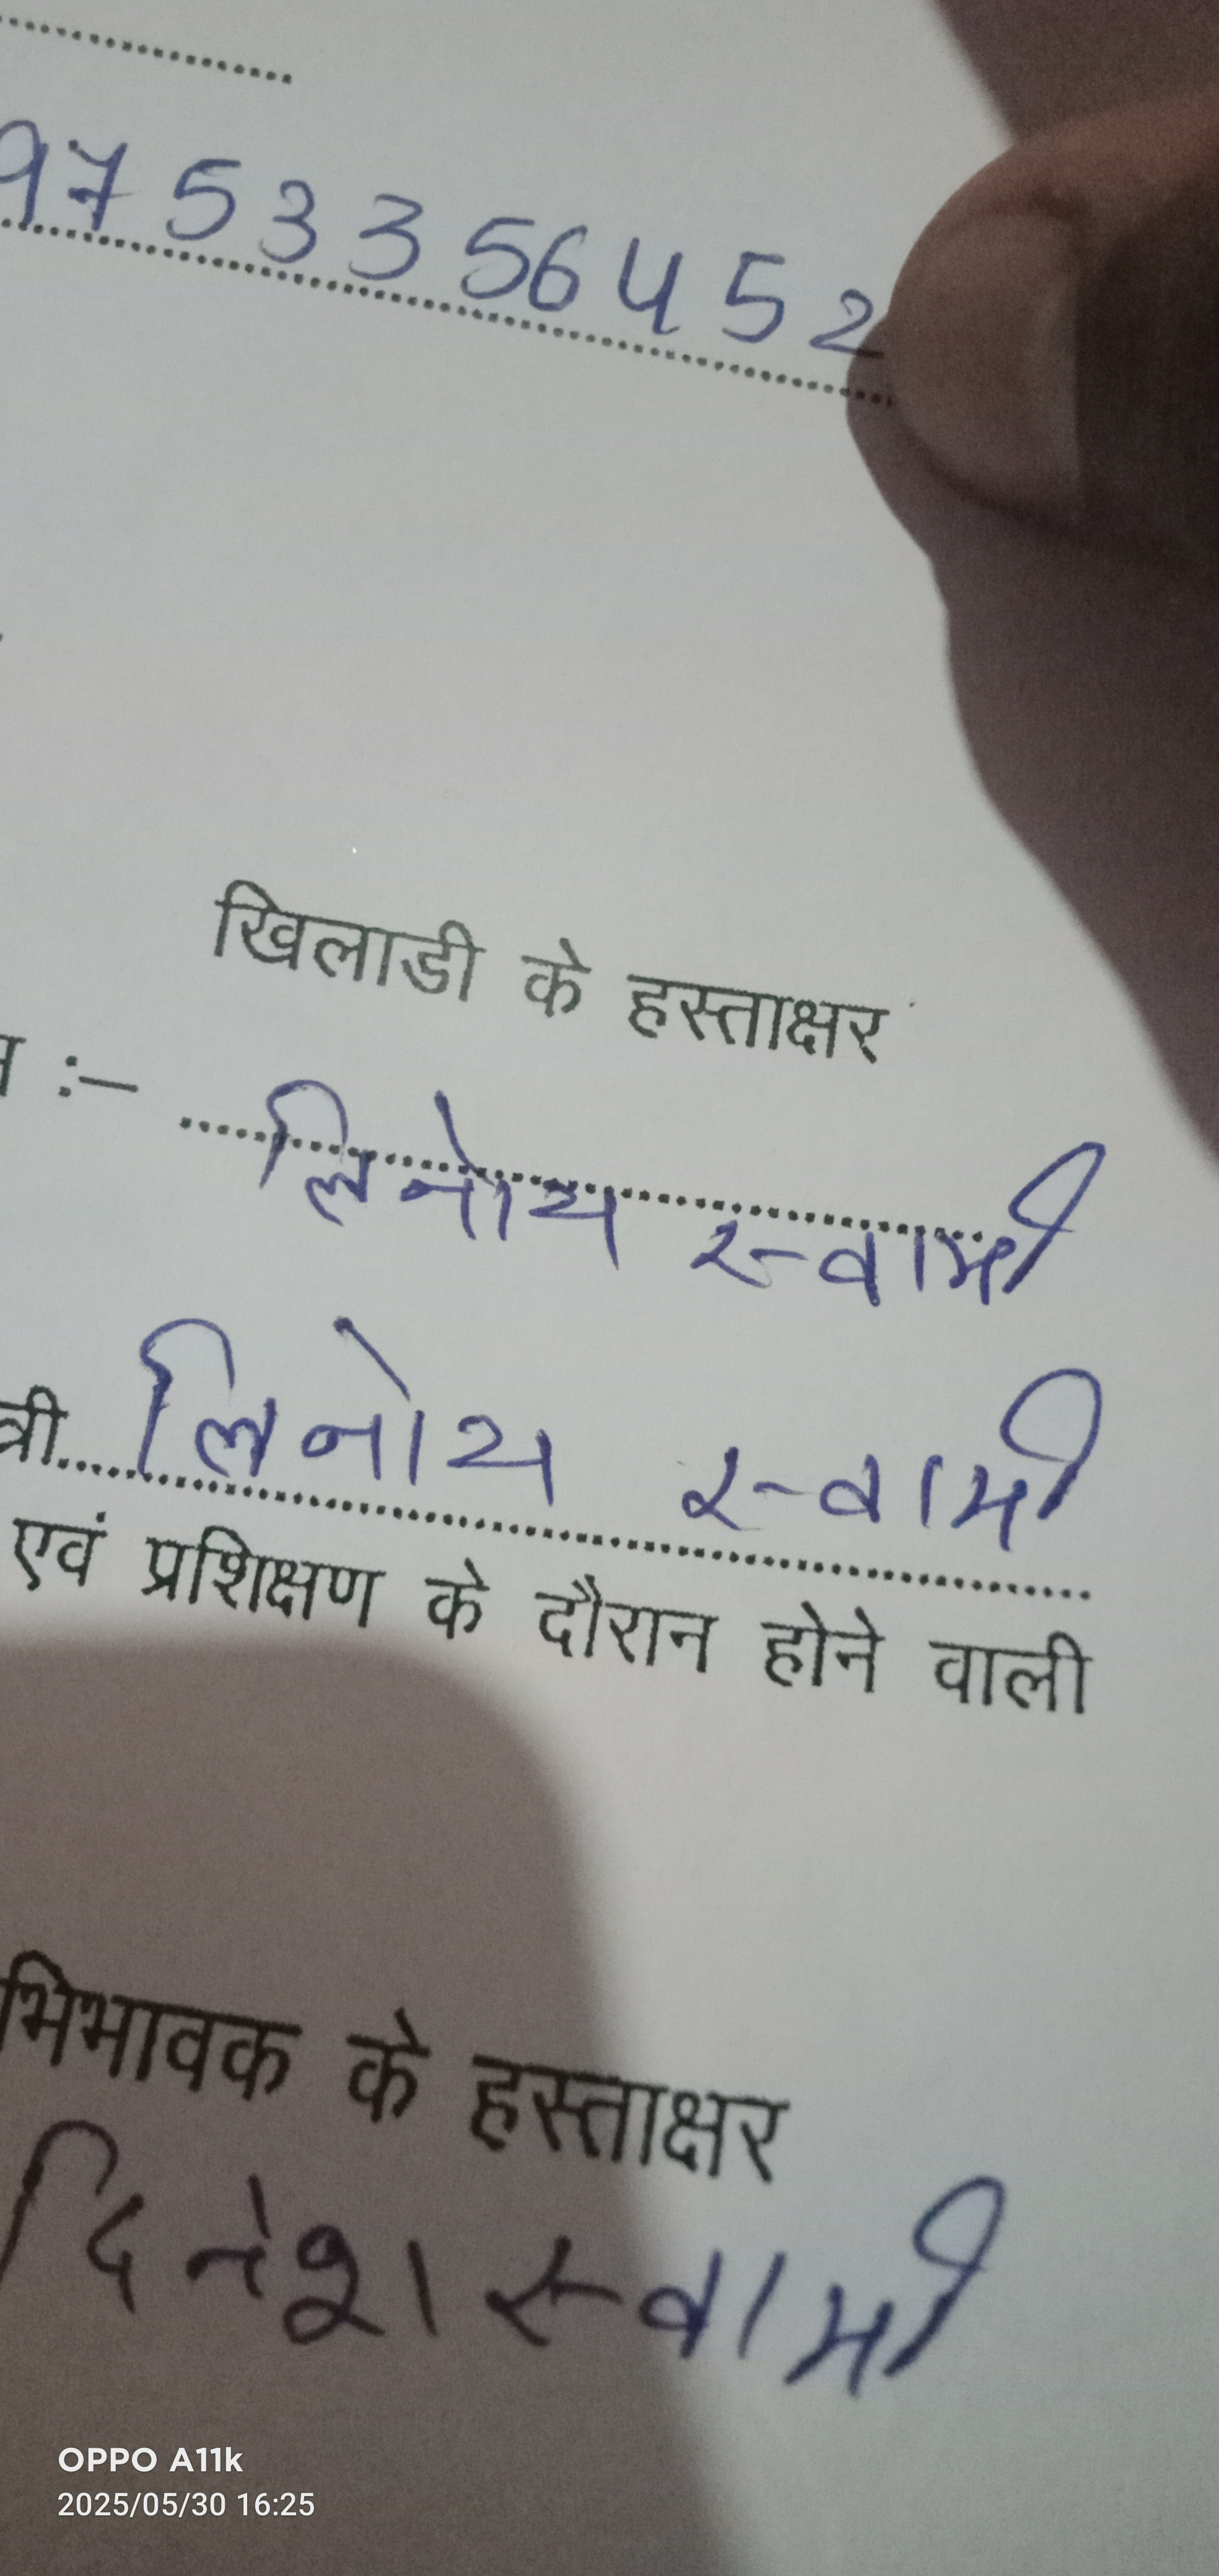 9753356452
खिलाडी के हस्ताक्षर
:– लिनोय स्वामी
त्री लिनोय स्वामी
एवं प्रशिक्षण के दौरान होने वाली
भिभावक के हस्ताक्षर
दिनेश स्वामी
OPPO A11k
2025/05/30 16:25